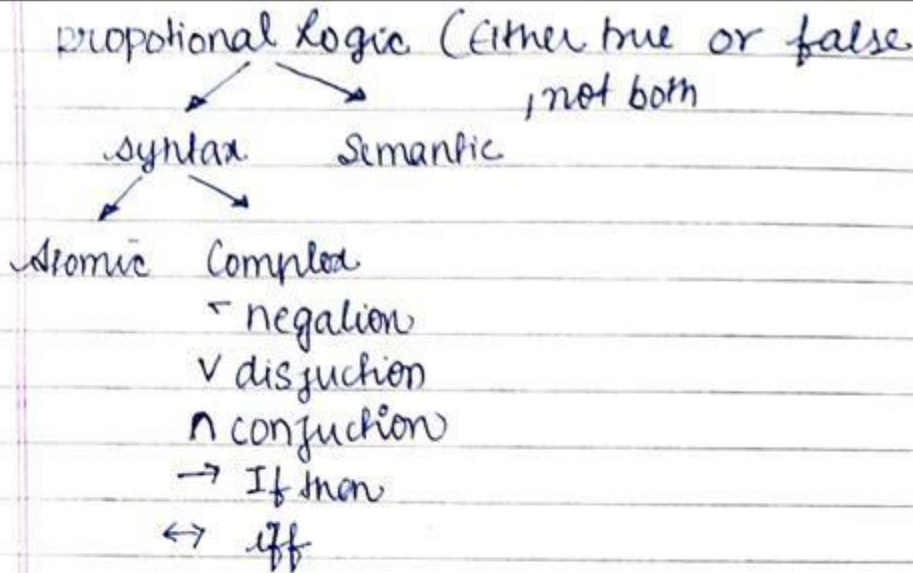 propotional Logic (Either true or false
, not both
syntax Semantic
Atomic Complex
¬ negation
∨ disjuction
∩ conjuction
→ If then
↔ iff